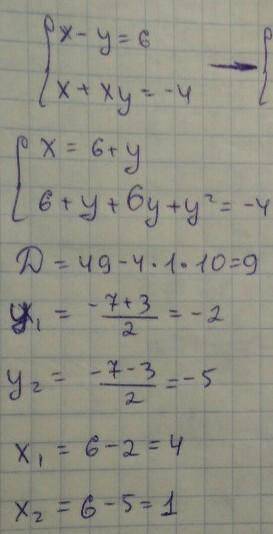 { x - y = 6
{ x + xy = -4 → {
{ x = 6 + y
{ 6 + y + 6y + y² = -4
D = 49 - 4 · 1 · 10 = 9
y₁ = (-7 + 3)/2 = -2
y₂ = (-7 - 3)/2 = -5
x₁ = 6 - 2 = 4
x₂ = 6 - 5 = 1